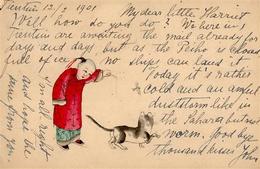 Tientsin 12/2 1901
My dear little Harriet
Will how do you do? We here in
Tientsin are awaiting the mail already for
days and days but as the Peiho is closed
full of ice no ships can laus it
Today it's rather
cold and an awful
duststorm like in
the Sahara but not
warm. Good bye
thousand kisses John
I'm all right
and hope
the same from you.